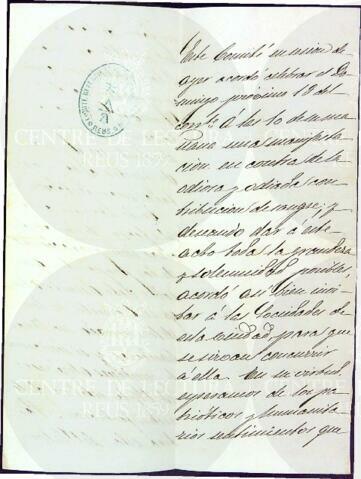 Este Comité en sesion de
ayer acordó celebrar el Do-
mingo próximo 18 del
corrte. á las 10 de su ma-
ñana una manifesta-
cion en contra de la
odiosa y odiada con-
tribucion de sangre; y
deseando dar á este
acto toda la grandeza
y solemnidad posibles,
acordó asi bien invi-
tar á las Sociedades de
esta ciudad, para que
se sirvan concurrir
á ella. En su virtud,
esperamos de los pa-
trióticos y humanita-
rios sentimientos que
CENTRE DE LECTURA
REUS 1859